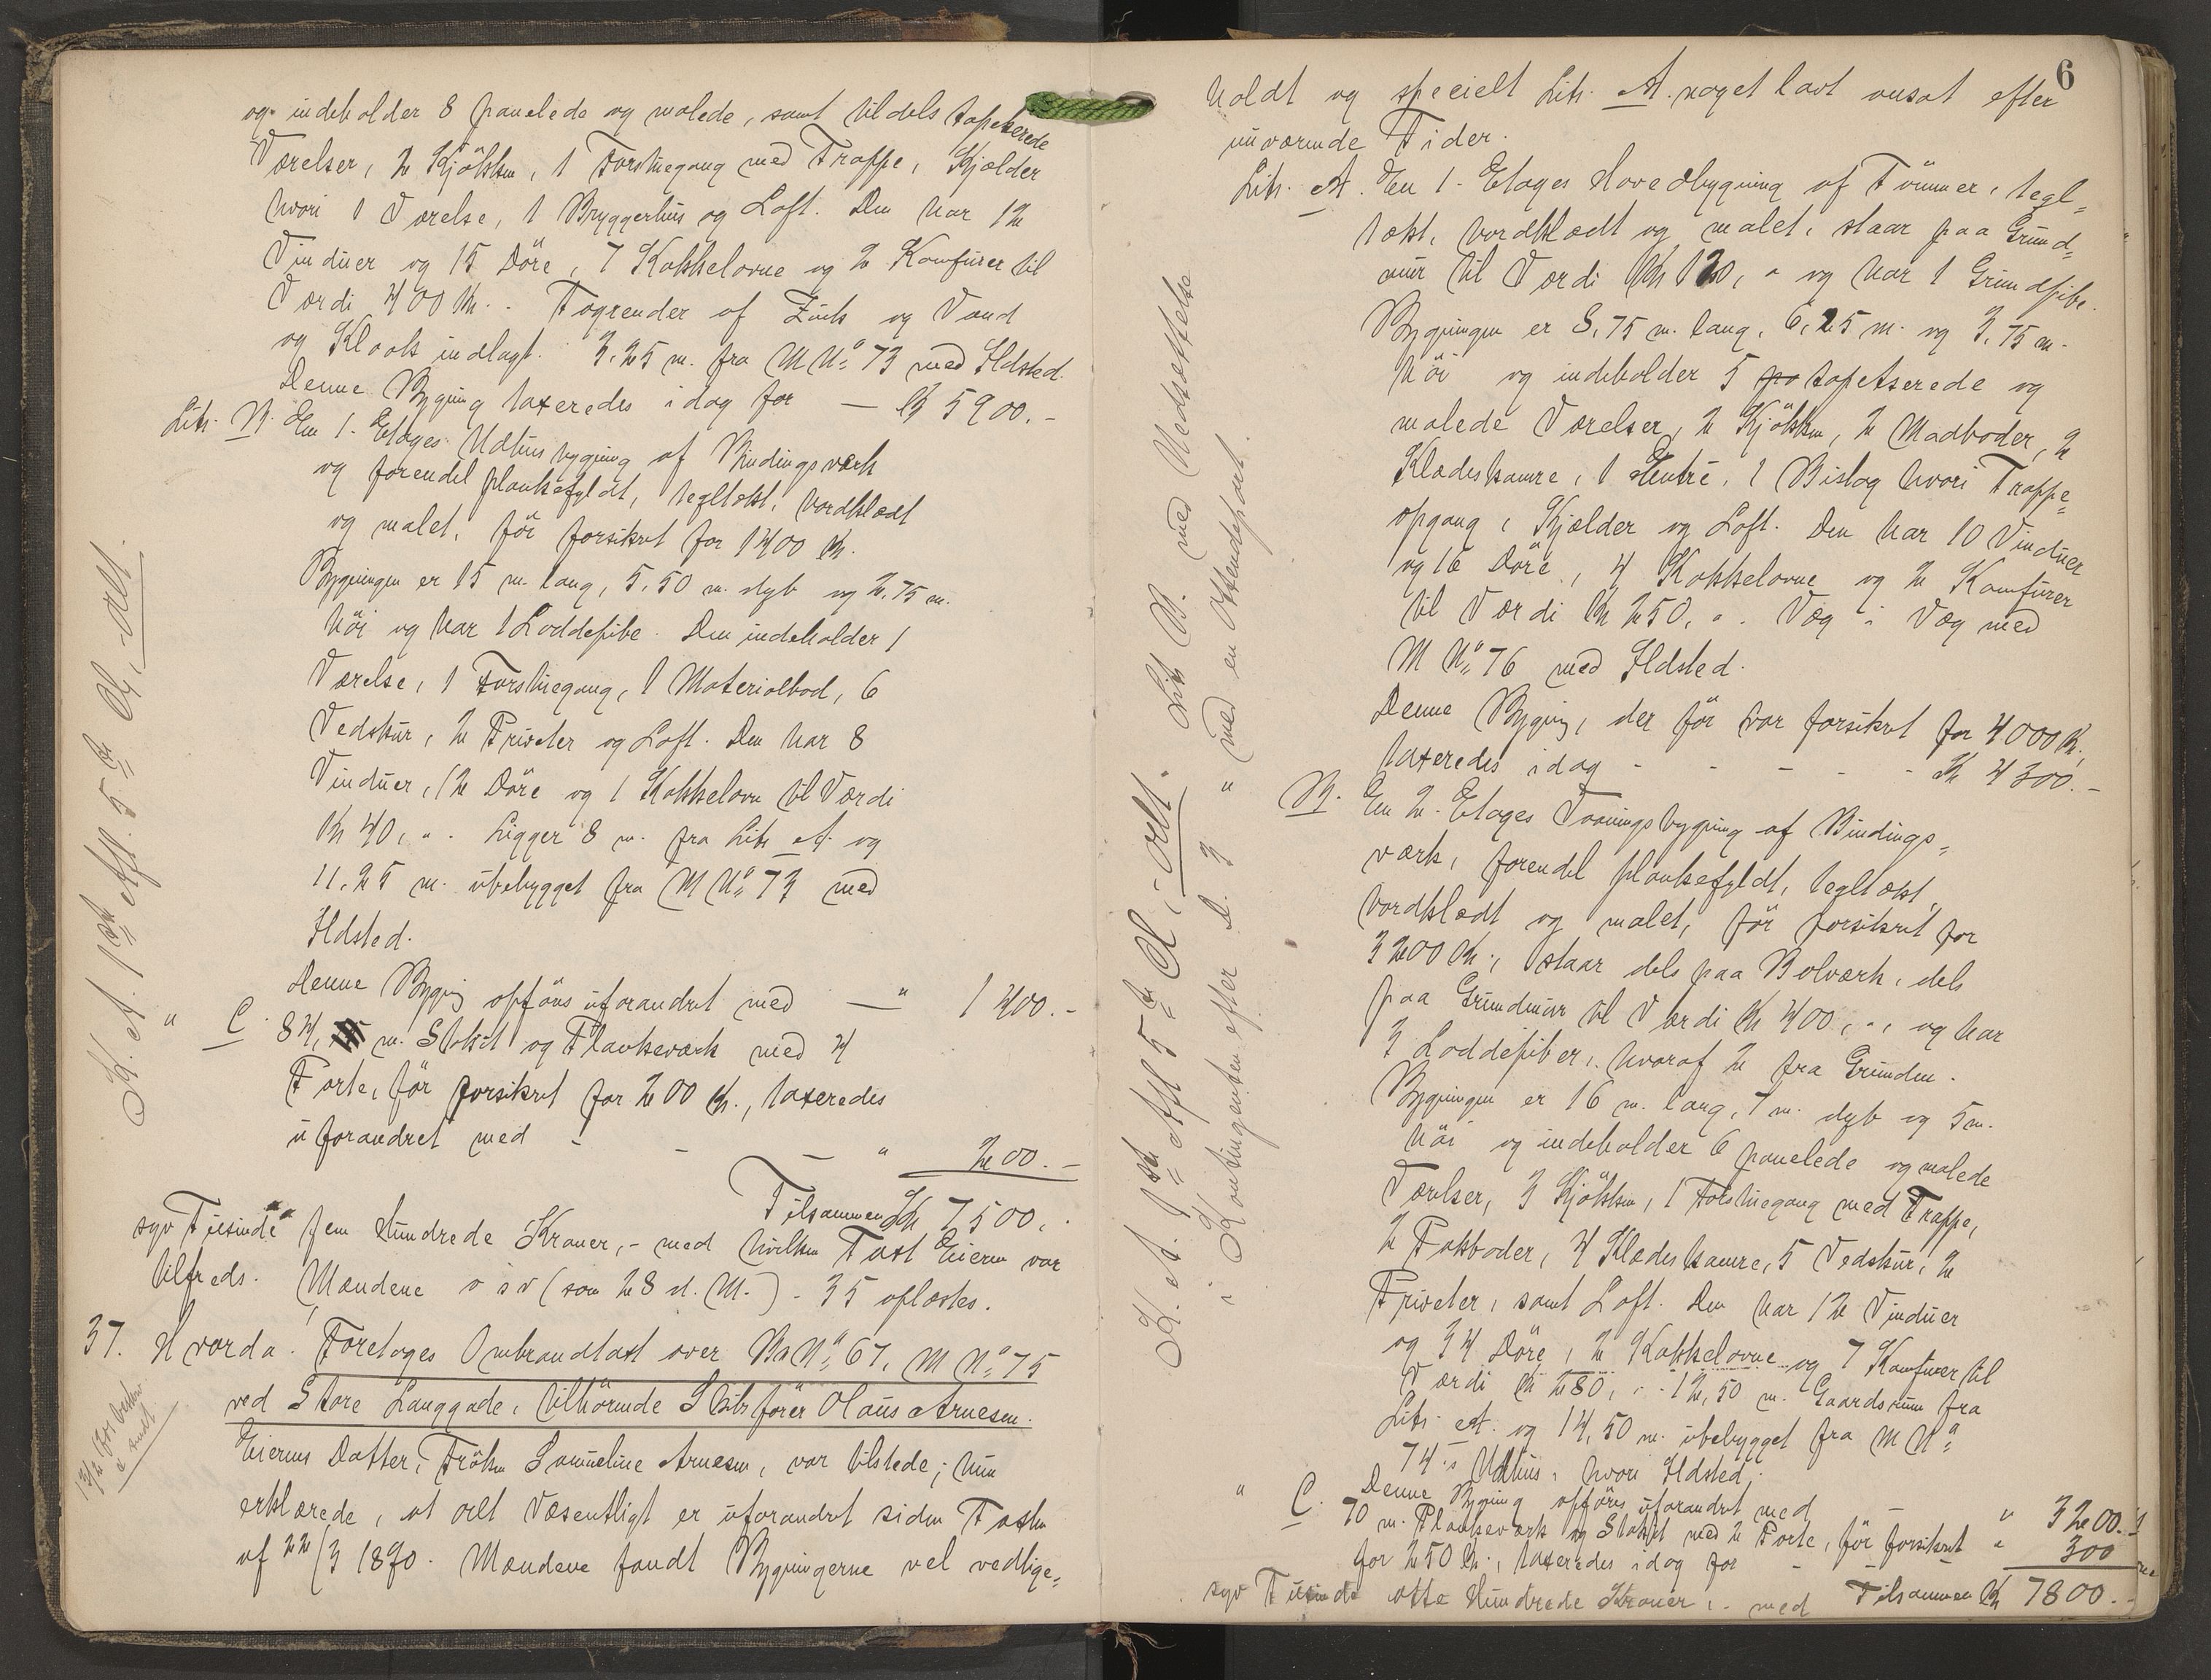 og indeholder 8 panelede og malede, samt tildels tapetserede
Værelser, 2 Kjökken, 1 Forstuegang med Trappe, Kjælder
hvori 1 Værelse, 1 Bryggerhus og Loft. Den har 12
Vinduer og 15 Döre, 7 Kakkelovne og 2 Komfurer til
Værdi 400 Kr. - Tagrender af Zink og Vand
og Kloak indlagt. 3,25 m. fra M No 73 med Ildsted.
Denne Bygning taxeredes idag for — Kr 5900.-
Litr. B. En 1-Etages Udhusbygning af Bindingsværk
og forendel plankefyldt, tegltækt, bordklædt
og malet, för forsikret for 1400 Kr.
Bygningen er 15 m. lang, 5,50 m. dyb og 2,75 m.
höi og har 1 Loddepibe. Den indeholder 1
Værelse, 1 Forstuegang, 1 Materialbod, 6
Vedskur, 2 Priveter og Loft. Den har 8
Vinduer, 12 Döre og 1 Kakkelovn til Værdi
Kr 40, " . Ligger 8 m. fra Litr A. og
11,25 m. ubebygget fra M No 73 med
Ildsted.
Denne Bygning opföres uforandret med — " 1400.-
" C. 84, m. Stakit og Plankeværk med 4
Porte, för forsikret for 200 Kr., taxeredes
uforandret med - - — " 200.-
Tilsammen Kr 7500,.
syv Tusinde fem Hundrede Kroner,- med hvilken Taxt Eieren var
tilfreds. Mændene v s v (som 28 d. M.) - 35 oplæstes.
37. S. D. Foretoges Ombrandtaxt over Br No 67, M No 75
ved Store Langgade, tilhörende Skibsförer Olaus Arnesen.
Eierens Datter, Fröken Samueline Arnesen, var tilstede; hun
erklærede, at alt Væsentligt er uforandret siden Taxten
af 22/3 1890. Mændene fandt Bygningerne vel vedlige=
Kl. A. 1ste Afd. 5te Cl, -alt.
6
holdt og specielt Litr. A. noget lavt ansat efter
nuværende Tider.
Litr. A. En 1-Etages Hovedbygning af Tömmer, tegl=
tækt, bordklædt og malet, staar paa Grund=
mur til Værdi Kr 120, " og har 1 Grundpibe.
Bygningen er 8,75 m. lang, 6,25 m. og 3,75 m.
höi og indeholder 5 pa tapetserede og
malede Værelser, 2 Kjökken, 2 Madboder, 2
Klædeskamre, 1 Entré, 1 Bislag hvori Trappe=
opgang, Kjælder og Loft. Den har 10 Vinduer
og 16 Döre, 4 Kakkelovne og 2 Komfurer
til Værdi Kr 250, " . Væg i Væg med
M No 76 med Ildsted.
Denne Bygning, der för var forsikret for 4000 Kr,
taxeredes idag - - - - - Kr 4300.-
B. En 2-Etages Vaaningsbygning af Bindings=
værk, forendel plankefyldt, tegltækt,
bordklædt og malet, för forsikret for
3200 Kr., staar dels paa Bolværk, dels
paa Grundmur til Værdi Kr 400, ", og har
3 Loddepiber, hvoraf 2 fra Grunden.
Bygningen er 16 m. lang, 7 m. dyb og 5 m.
höi og indeholder 6 panelede og malede
Værelser, 3 Kjökken, 1 Forstuegang med Trappe,
2 Pakboder, 4 Klædeskamre, 5 Vedskur, 2
Priveter, samt Loft. Den har 12 Vinduer
og 34 Döre, 2 Kakkelovne og 7 Komfurer til
Værdi Kr 280, " . 12,50 m. Gaardsrum fra
Litr. A. og 14,50 m. ubebygget fra M No
74's Udhus, hvori Ildsted.
Denne Bygning opföres uforandret med — " 3200.-
" C. 70 m. Plankeværk og Stakit med 2 Porte, för forsikret
for 250 Kr., taxeredes idag for - - - " 300
Tilsammen Kr 7800.-
syv Tusinde otte Hundrede Kroner, - med
Kl. A. 1ste Afd 5te Cl, -alt. Litr B. med Nedsættelse
i Kontingenten efter D. 3 " med en Ottendepart.